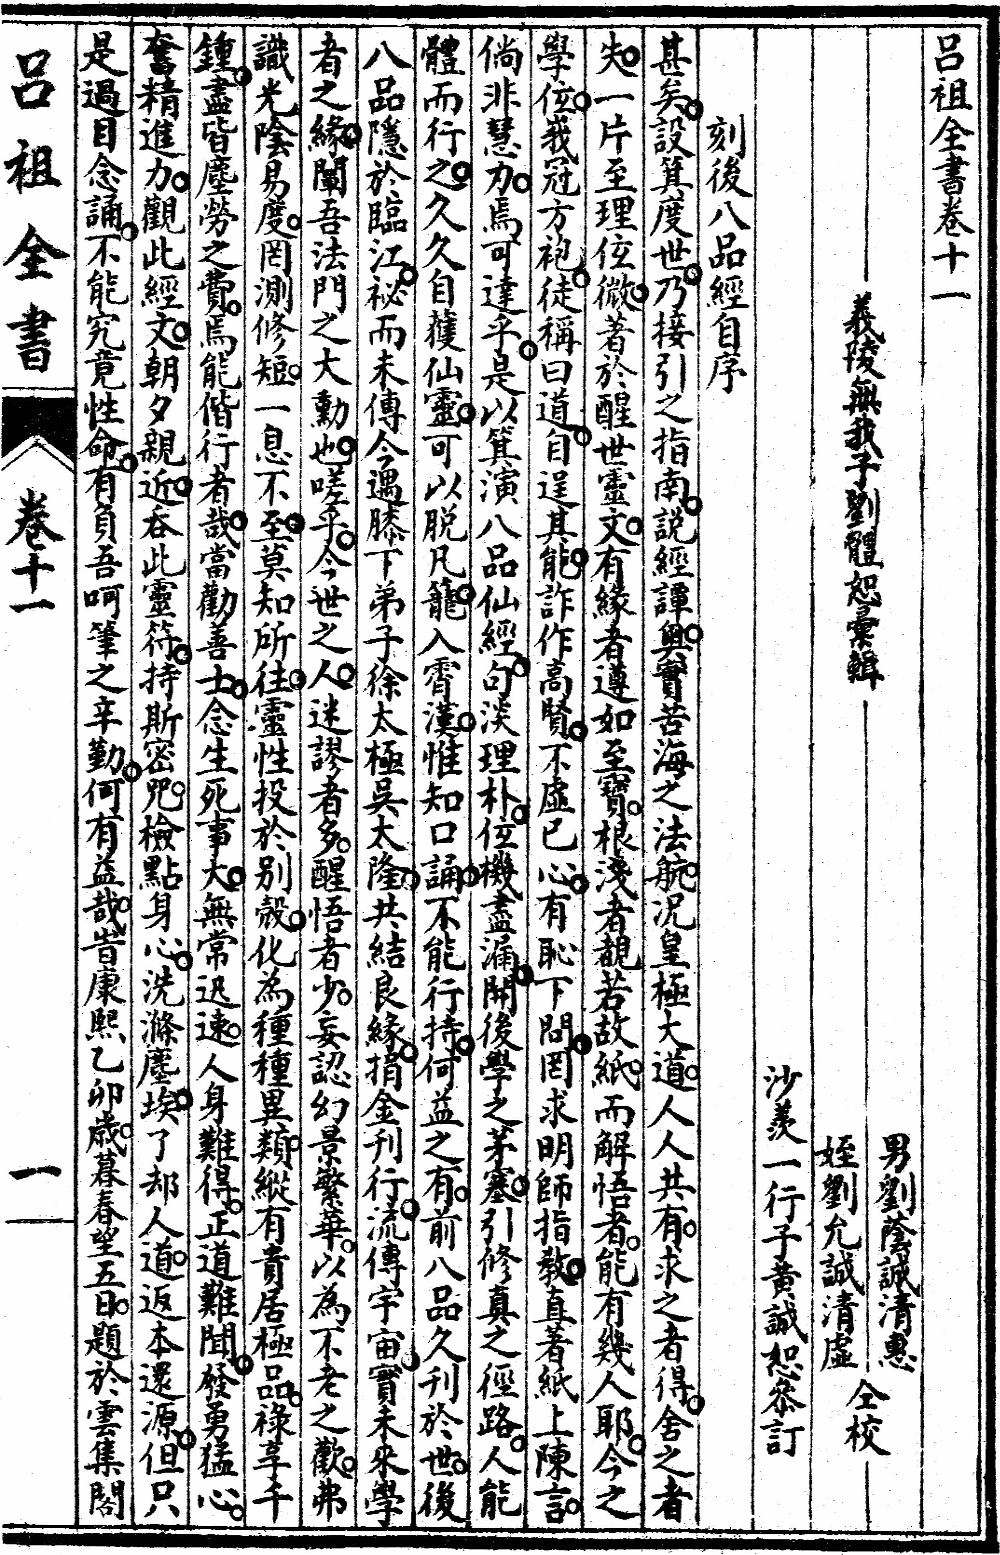 呂祖全書卷十一
義陵無我子劉體恕彙輯
男劉蔭誠清惠
姪劉允誠清虛
仝校
沙羨一行子黃誠恕叅訂
刻後八品經自序
甚矣設箕度世乃接引之指南説經譚奧實苦海之法航況皇極大道人人共有求之者得舍之者
失一片至理位微著於醒世靈文有緣者遵如至寶根淺者覩若故紙而解悟者能有幾人耶今之
學位峩冠方袍徒稱曰道自逞其能詐作高賢不虛已心有恥下問罔求明師指教直著紙上陳言
倘非慧力焉可達乎是以箕演八品仙經句淡理朴位機盡漏開後學之茅塞引修真之徑路人能
體而行之久久自獲仙靈可以脱凡籠入霄漢惟知口誦不能行持何益之有前八品久刋於世後
八品隱於臨江祕而未傳今遇膝下弟子徐太極吳太隆共結良緣捐金刋行流傳宇宙實未來學
者之緣闡吾法門之大勳也嗟乎今世之人迷謬者多醒悟者少妄認幻景繁華以為不老之歡弗
識光陰易度罔測修短一息不至莫知所往靈性投於別殼化為種種異類縱有貴居極品祿享千
鍾盡皆塵勞之費焉能偕行者哉當勸善士念生死事大無常迅速人身難得正道難聞發勇猛心
奮精進力觀此經文朝夕親近吞此靈符持斯密咒檢點身心洗滌塵埃了却人道返本還源但只
是過目念誦不能究竟性命有負吾呵筆之辛勤何有益哉旹康熙乙卯歲暮春望五日題於雲集閣
呂祖全書
卷十一
一